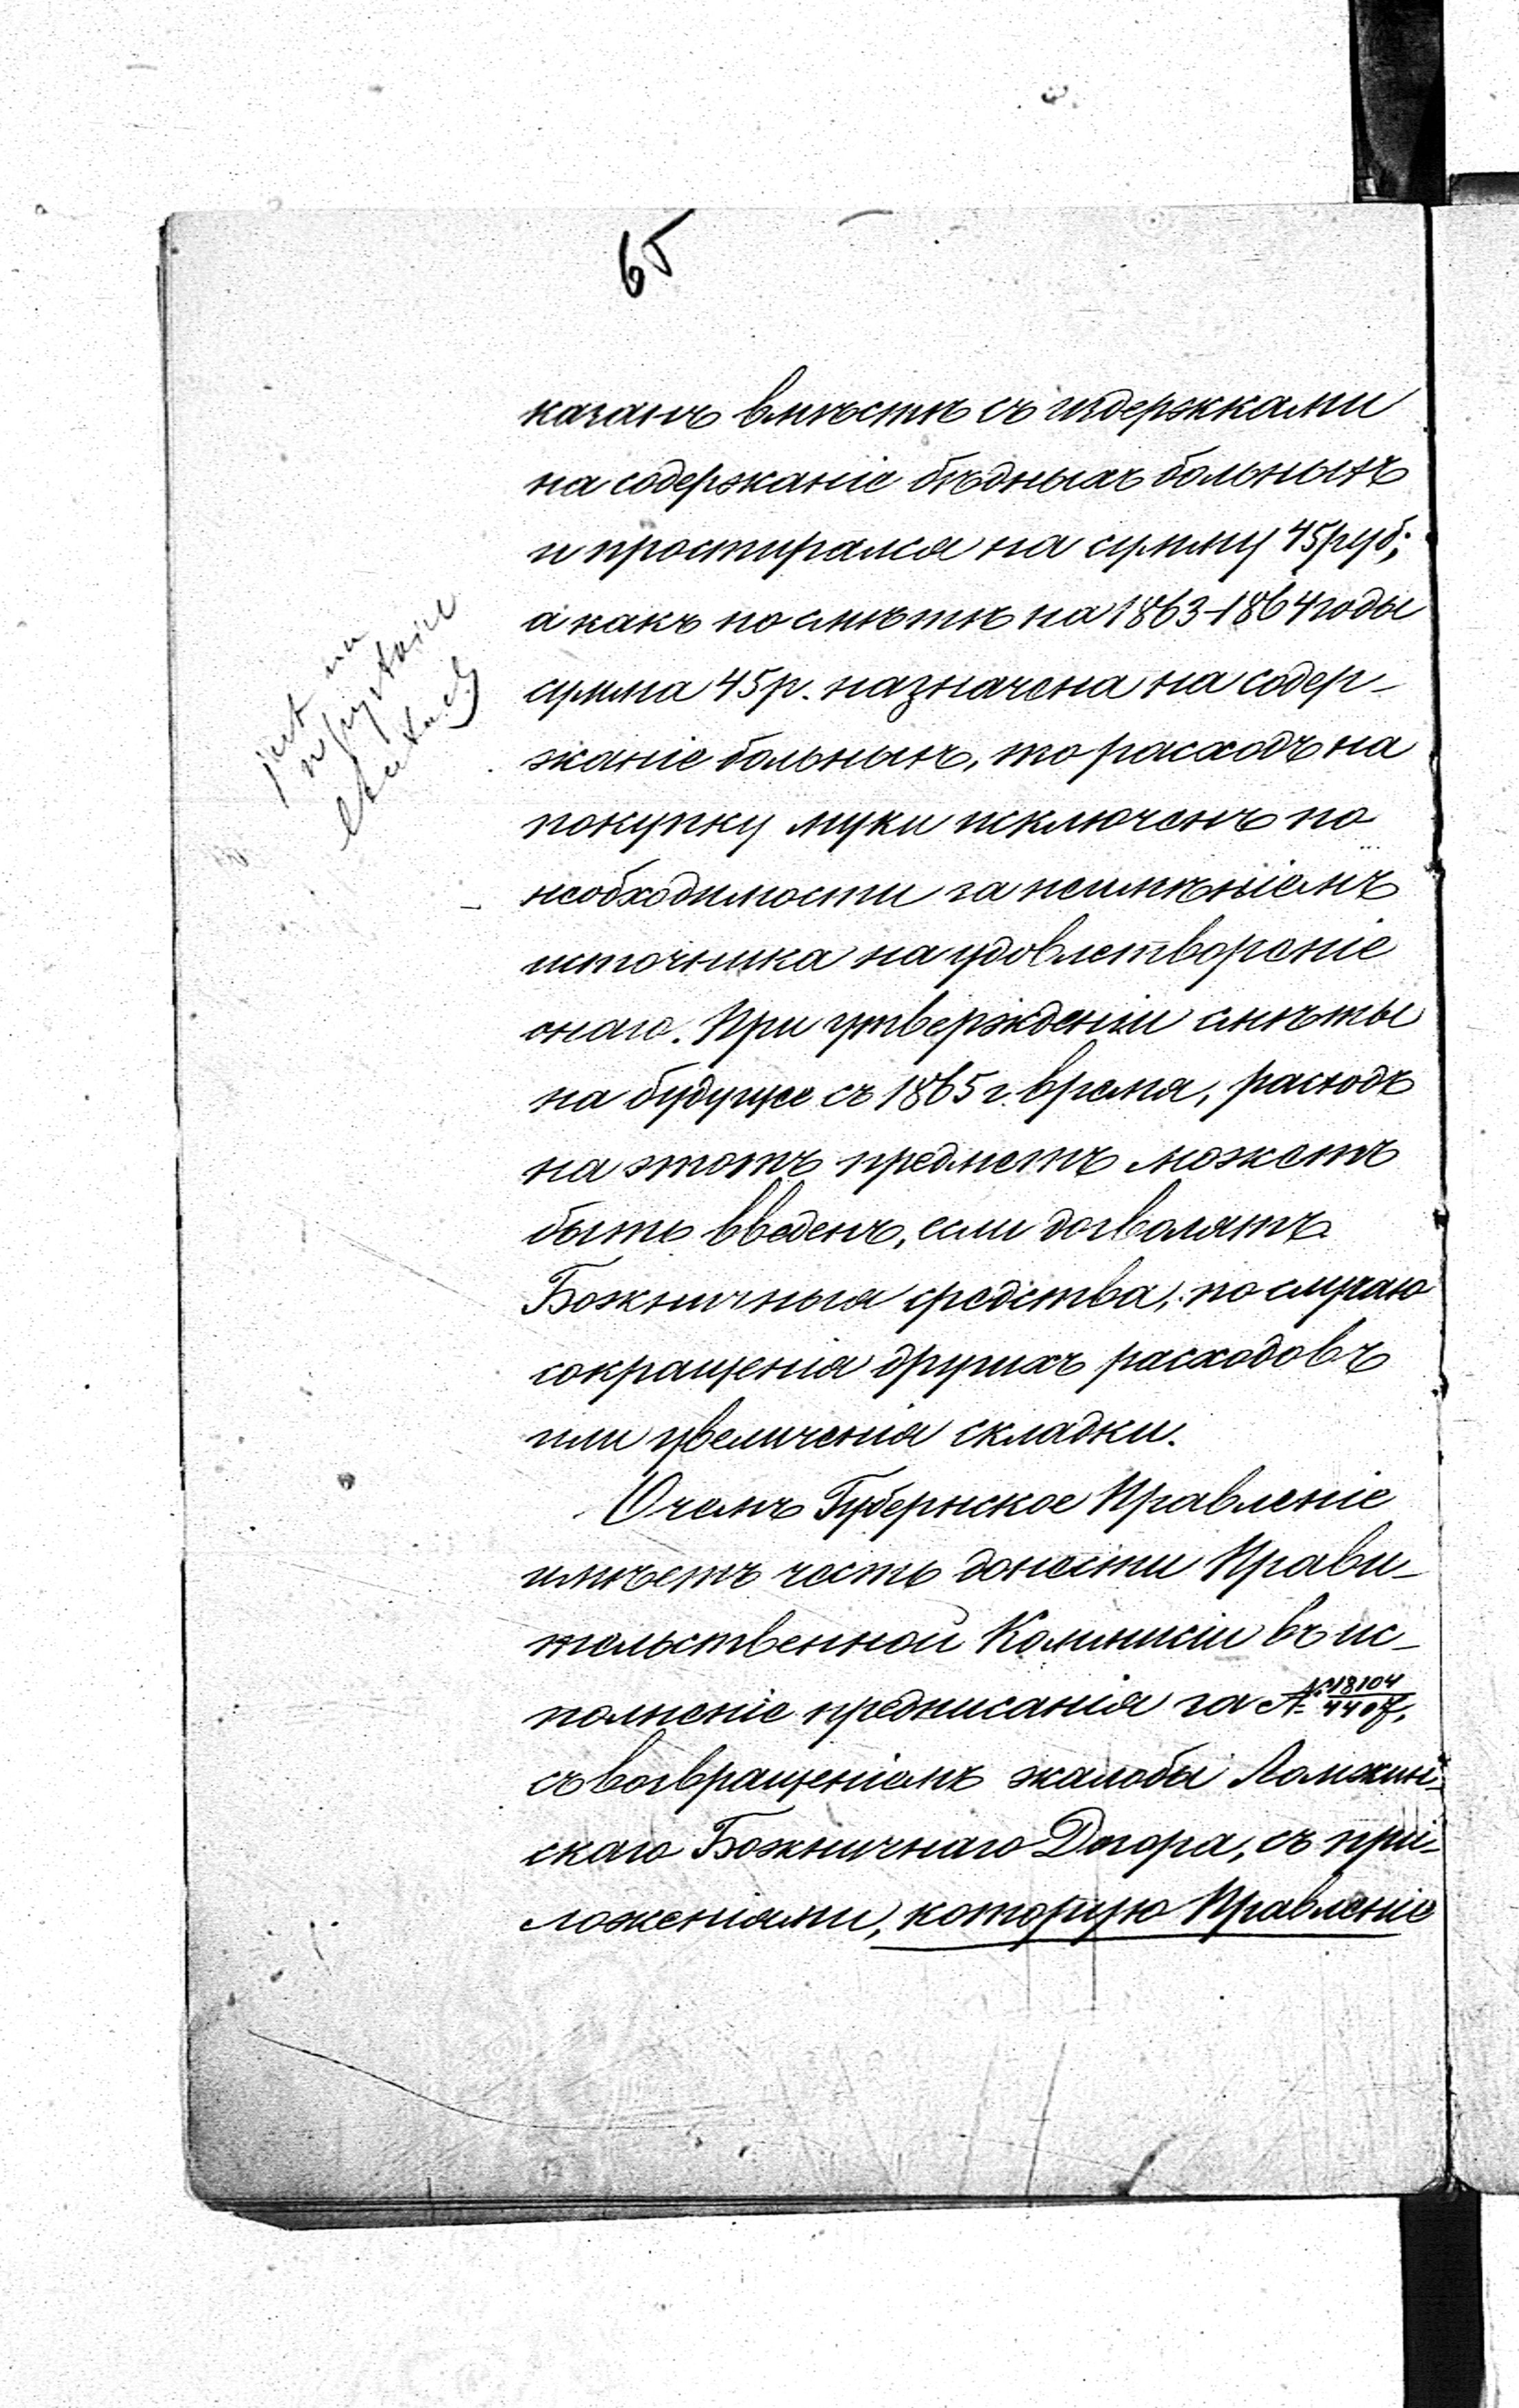 65
казанъ вмѣстѣ съ издержками
на содержаніе бѣдныхъ больныхъ
и простирался на сумму 45 руб;
а какъ по смѣтѣ на 1863-1864 годы
сумма 45 р. назначена на содер-
жаніе больныхъ, то расходъ на
покупку муки исключенъ по
необходимости за неимѣніемъ
источника на удовлетвореніе
онаго. При утвержденіи смѣты
на будущее съ 1865 г. время, расходъ
на этотъ предметъ можетъ
быть введенъ, если дозволятъ
Божничныя средства, по случаю
сокращенія другихъ расходовъ
или увеличенія складки.
О чемъ Губернское Правленіе
имѣетъ честь донести Прави-
тельственной Коммисіи въ ис-
полненіе предписанія за № 18104/4407,
съ возвращеніемъ жалобы Ломжин-
скаго Божничнаго Дозора, съ при-
ложеніями, которую Правленіе